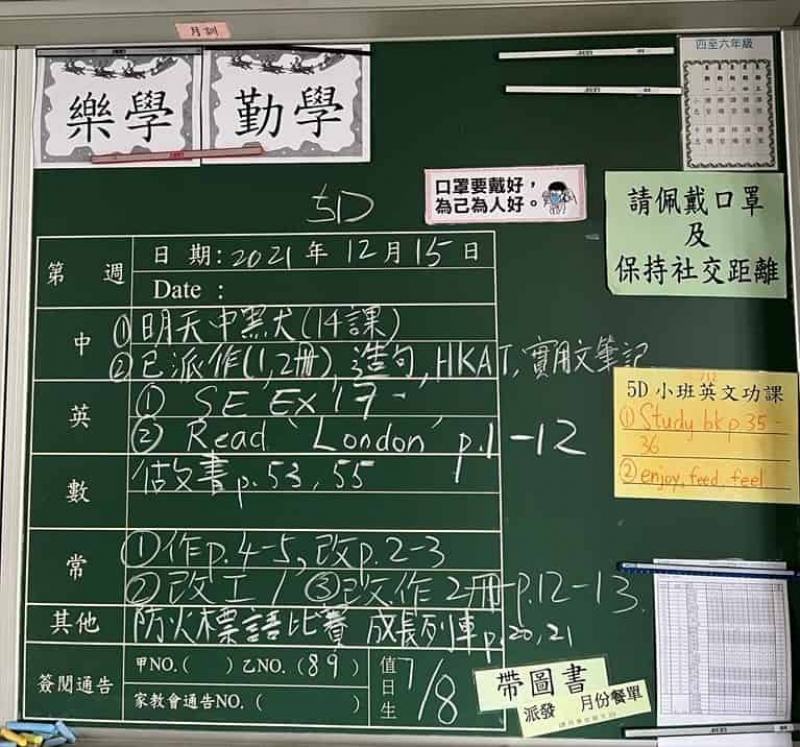 月訓
樂學 勤學
四至六年級
口罩要戴好，
為己為人好。
請佩戴口罩
及
保持社交距離
5D
第 週
日 期：2021 年 12 月 15 日
Date :
中
①明天中默大(14課)
②已派作(1,2冊), 造句, HKAT, 實用文筆記
英
① SE EX 17
② Read 'London' p.1-12
數
改書p.53, 55
常
①作p.4-5, 改p.2-3
②改工1 ③改作2冊p.12-13.
其他
防火標語比賽 成長列車p.20,21
簽閱通告
甲NO.( ) 乙NO.(89)
家教會通告NO.( )
值日生
7/8
5D 小班英文功課
①Study bk p35-
36
②enjoy, feed, feel
帶圖書
派發 月份餐單